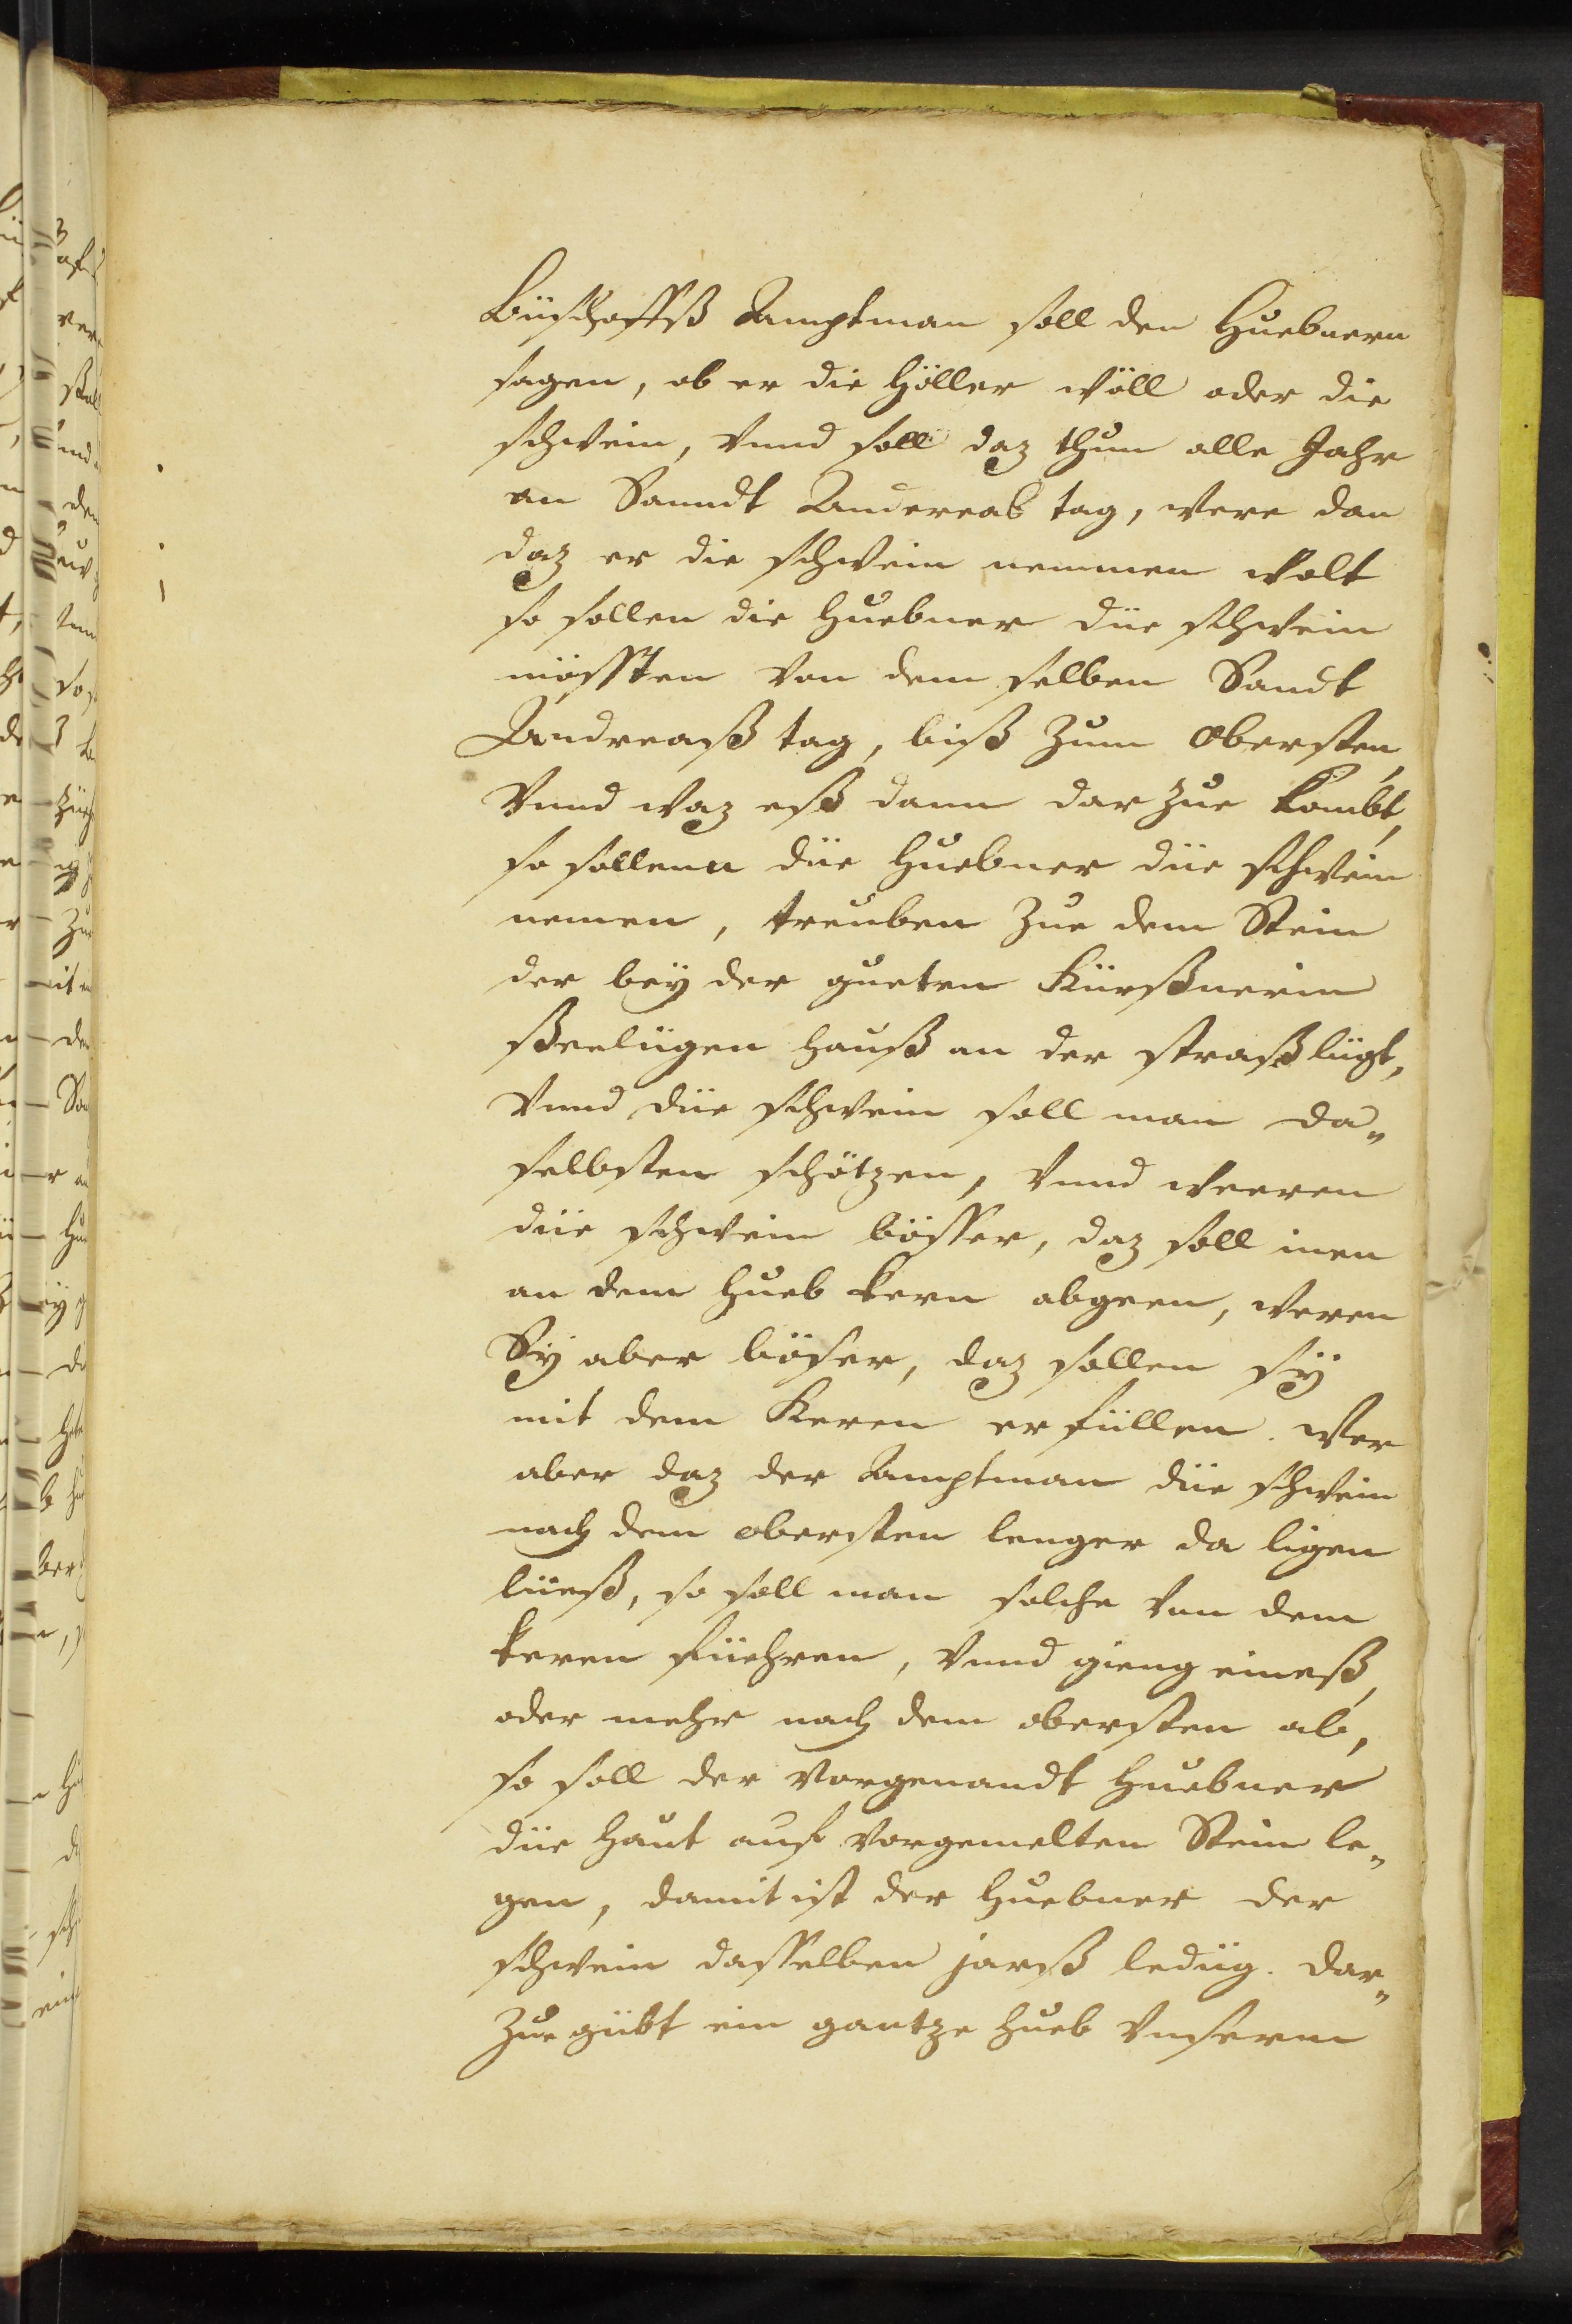 Büschoffß Amptman soll den Huebnern
sagen, ob er die Höller wöll oder die
schwein, vnnd soll daz thun alle Jahr
an Sanndt Andereas tag, were dan
daz er die schwein nemmen wolt
so sollen die Huebner düe schwein
mössten von dem selben Sandt
Andreaß tag, biß zum Obersten,
vnnd waz eß dann dar zue kombt,
so sollenn düe Huebner düe schwein
nemen, treuben zue dem Stein
der bey der gueten Kürßnerin
ßeelügen hauß an der straß lügt,
vnnd düe schwein soll man da„
selbsten schötzen, vnnd weeren
düe schwein bösser, daz soll inen
an dem hueb kern abgeen, weren
Sy aber böser, daz sollen sy
mit dem Keren erfüllen. wer
aber daz der Amptman düe schwein
nach dem obersten lenger da ligen
lüeß, so soll man solche von dem
keren füehren, vnnd gieng eineß,
oder mehr nach dem obersten ab,
so soll der vorgenandt Huebner
düe haut auf vorgemelten Stein le„
gen, damit ist der Huebner der
schwein dasselben jarß ledüg. dar„
zue gübt ein gantze hueb vnserm